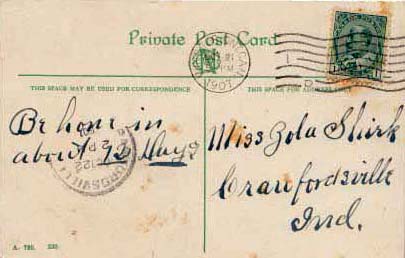 Private Post Card
THIS SPACE MAY BE USED FOR CORRESPONDENCE
THIS SPACE FOR ADDRESS ONLY
Be home in
about 12 Days
Miss Zola Shirk
Crawfordsville
Ind.
A. 780. 530.